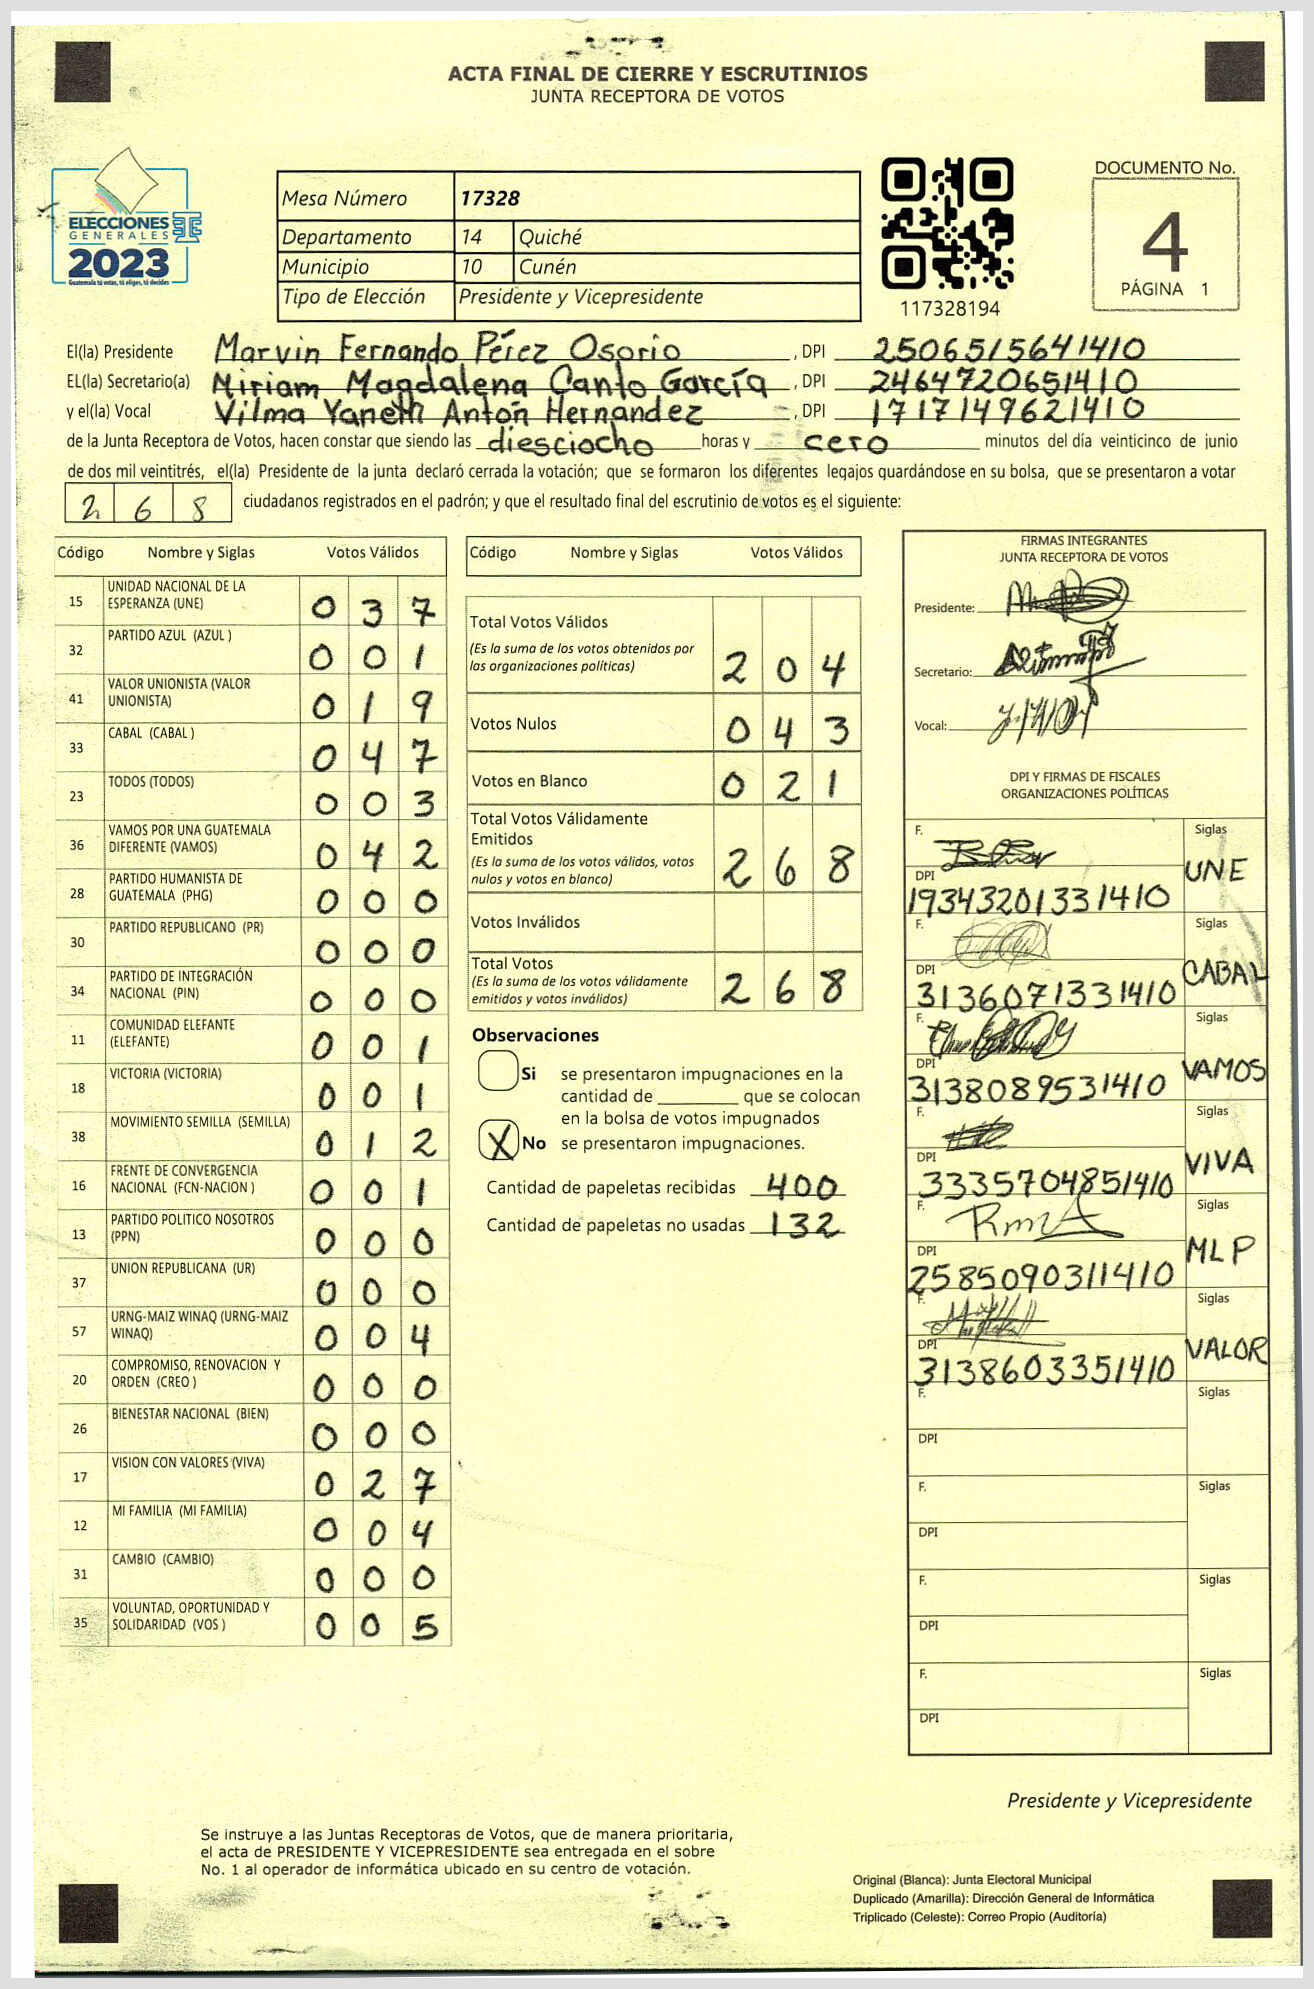 ACTA FINAL DE CIERRE Y ESCRUTINIOS
JUNTA RECEPTORA DE VOTOS
ELECCIONES
GENERALES
2023
Guatemala tú votas, tú eliges, tú decides
Mesa Número 17328
Departamento 14 Quiché
Municipio 10 Cunén
Tipo de Elección Presidente y Vicepresidente
117328194
DOCUMENTO No.
4
PÁGINA 1
El(la) Presidente Marvin Fernando Pérez Osorio, DPI 2506515641410
EL(la) Secretario(a) Miriam Magdalena Canto García, DPI 2464720651410
y el(la) Vocal Vilma Yaneth Antón Hernandez, DPI 1717149621410
de la Junta Receptora de Votos, hacen constar que siendo las diesciocho horas y cero minutos del día veinticinco de junio
de dos mil veintitrés, el(la) Presidente de la junta declaró cerrada la votación; que se formaron los diferentes legajos quardándose en su bolsa, que se presentaron a votar
268 ciudadanos registrados en el padrón; y que el resultado final del escrutinio de votos es el siguiente:
Código Nombre y Siglas Votos Válidos
15 UNIDAD NACIONAL DE LA ESPERANZA (UNE) 037
32 PARTIDO AZUL (AZUL ) 001
41 VALOR UNIONISTA (VALOR UNIONISTA) 019
33 CABAL (CABAL ) 047
23 TODOS (TODOS) 003
36 VAMOS POR UNA GUATEMALA DIFERENTE (VAMOS) 042
28 PARTIDO HUMANISTA DE GUATEMALA (PHG) 000
30 PARTIDO REPUBLICANO (PR) 000
34 PARTIDO DE INTEGRACIÓN NACIONAL (PIN) 000
11 COMUNIDAD ELEFANTE (ELEFANTE) 001
18 VICTORIA (VICTORIA) 001
38 MOVIMIENTO SEMILLA (SEMILLA) 012
16 FRENTE DE CONVERGENCIA NACIONAL (FCN-NACION ) 001
13 PARTIDO POLITICO NOSOTROS (PPN) 000
37 UNION REPUBLICANA (UR) 000
57 URNG-MAIZ WINAQ (URNG-MAIZ WINAQ) 004
20 COMPROMISO, RENOVACION Y ORDEN (CREO ) 000
26 BIENESTAR NACIONAL (BIEN) 000
17 VISION CON VALORES (VIVA) 027
12 MI FAMILIA (MI FAMILIA) 004
31 CAMBIO (CAMBIO) 000
35 VOLUNTAD, OPORTUNIDAD Y SOLIDARIDAD (VOS ) 005
Código Nombre y Siglas Votos Válidos
Total Votos Válidos
(Es la suma de los votos obtenidos por
las organizaciones políticas) 204
Votos Nulos 043
Votos en Blanco 021
Total Votos Válidamente
Emitidos
(Es la suma de los votos válidos, votos
nulos y votos en blanco) 268
Votos Inválidos
Total Votos
(Es la suma de los votos válidamente
emitidos y votos inválidos) 268
Observaciones
Si se presentaron impugnaciones en la
cantidad de ________ que se colocan
en la bolsa de votos impugnados
X No se presentaron impugnaciones.
Cantidad de papeletas recibidas 400
Cantidad de papeletas no usadas 132
FIRMAS INTEGRANTES
JUNTA RECEPTORA DE VOTOS
Presidente:
Secretario:
Vocal:
DPI Y FIRMAS DE FISCALES
ORGANIZACIONES POLÍTICAS
F. Siglas
DPI UNE
1934320133 1410
F. Siglas
DPI CABAL
3136071331410
F. Siglas
DPI VAMOS
3138089531410
F. Siglas
DPI VIVA
3335704851410
F. Siglas
DPI MLP
2585090311410
F. Siglas
DPI VALOR
3138603351410
F. Siglas
DPI
F. Siglas
DPI
F. Siglas
DPI
F. Siglas
DPI
Presidente y Vicepresidente
Se instruye a las Juntas Receptoras de Votos, que de manera prioritaria,
el acta de PRESIDENTE Y VICEPRESIDENTE sea entregada en el sobre
No. 1 al operador de informática ubicado en su centro de votación.
Original (Blanca): Junta Electoral Municipal
Duplicado (Amarilla): Dirección General de Informática
Triplicado (Celeste): Correo Propio (Auditoría)